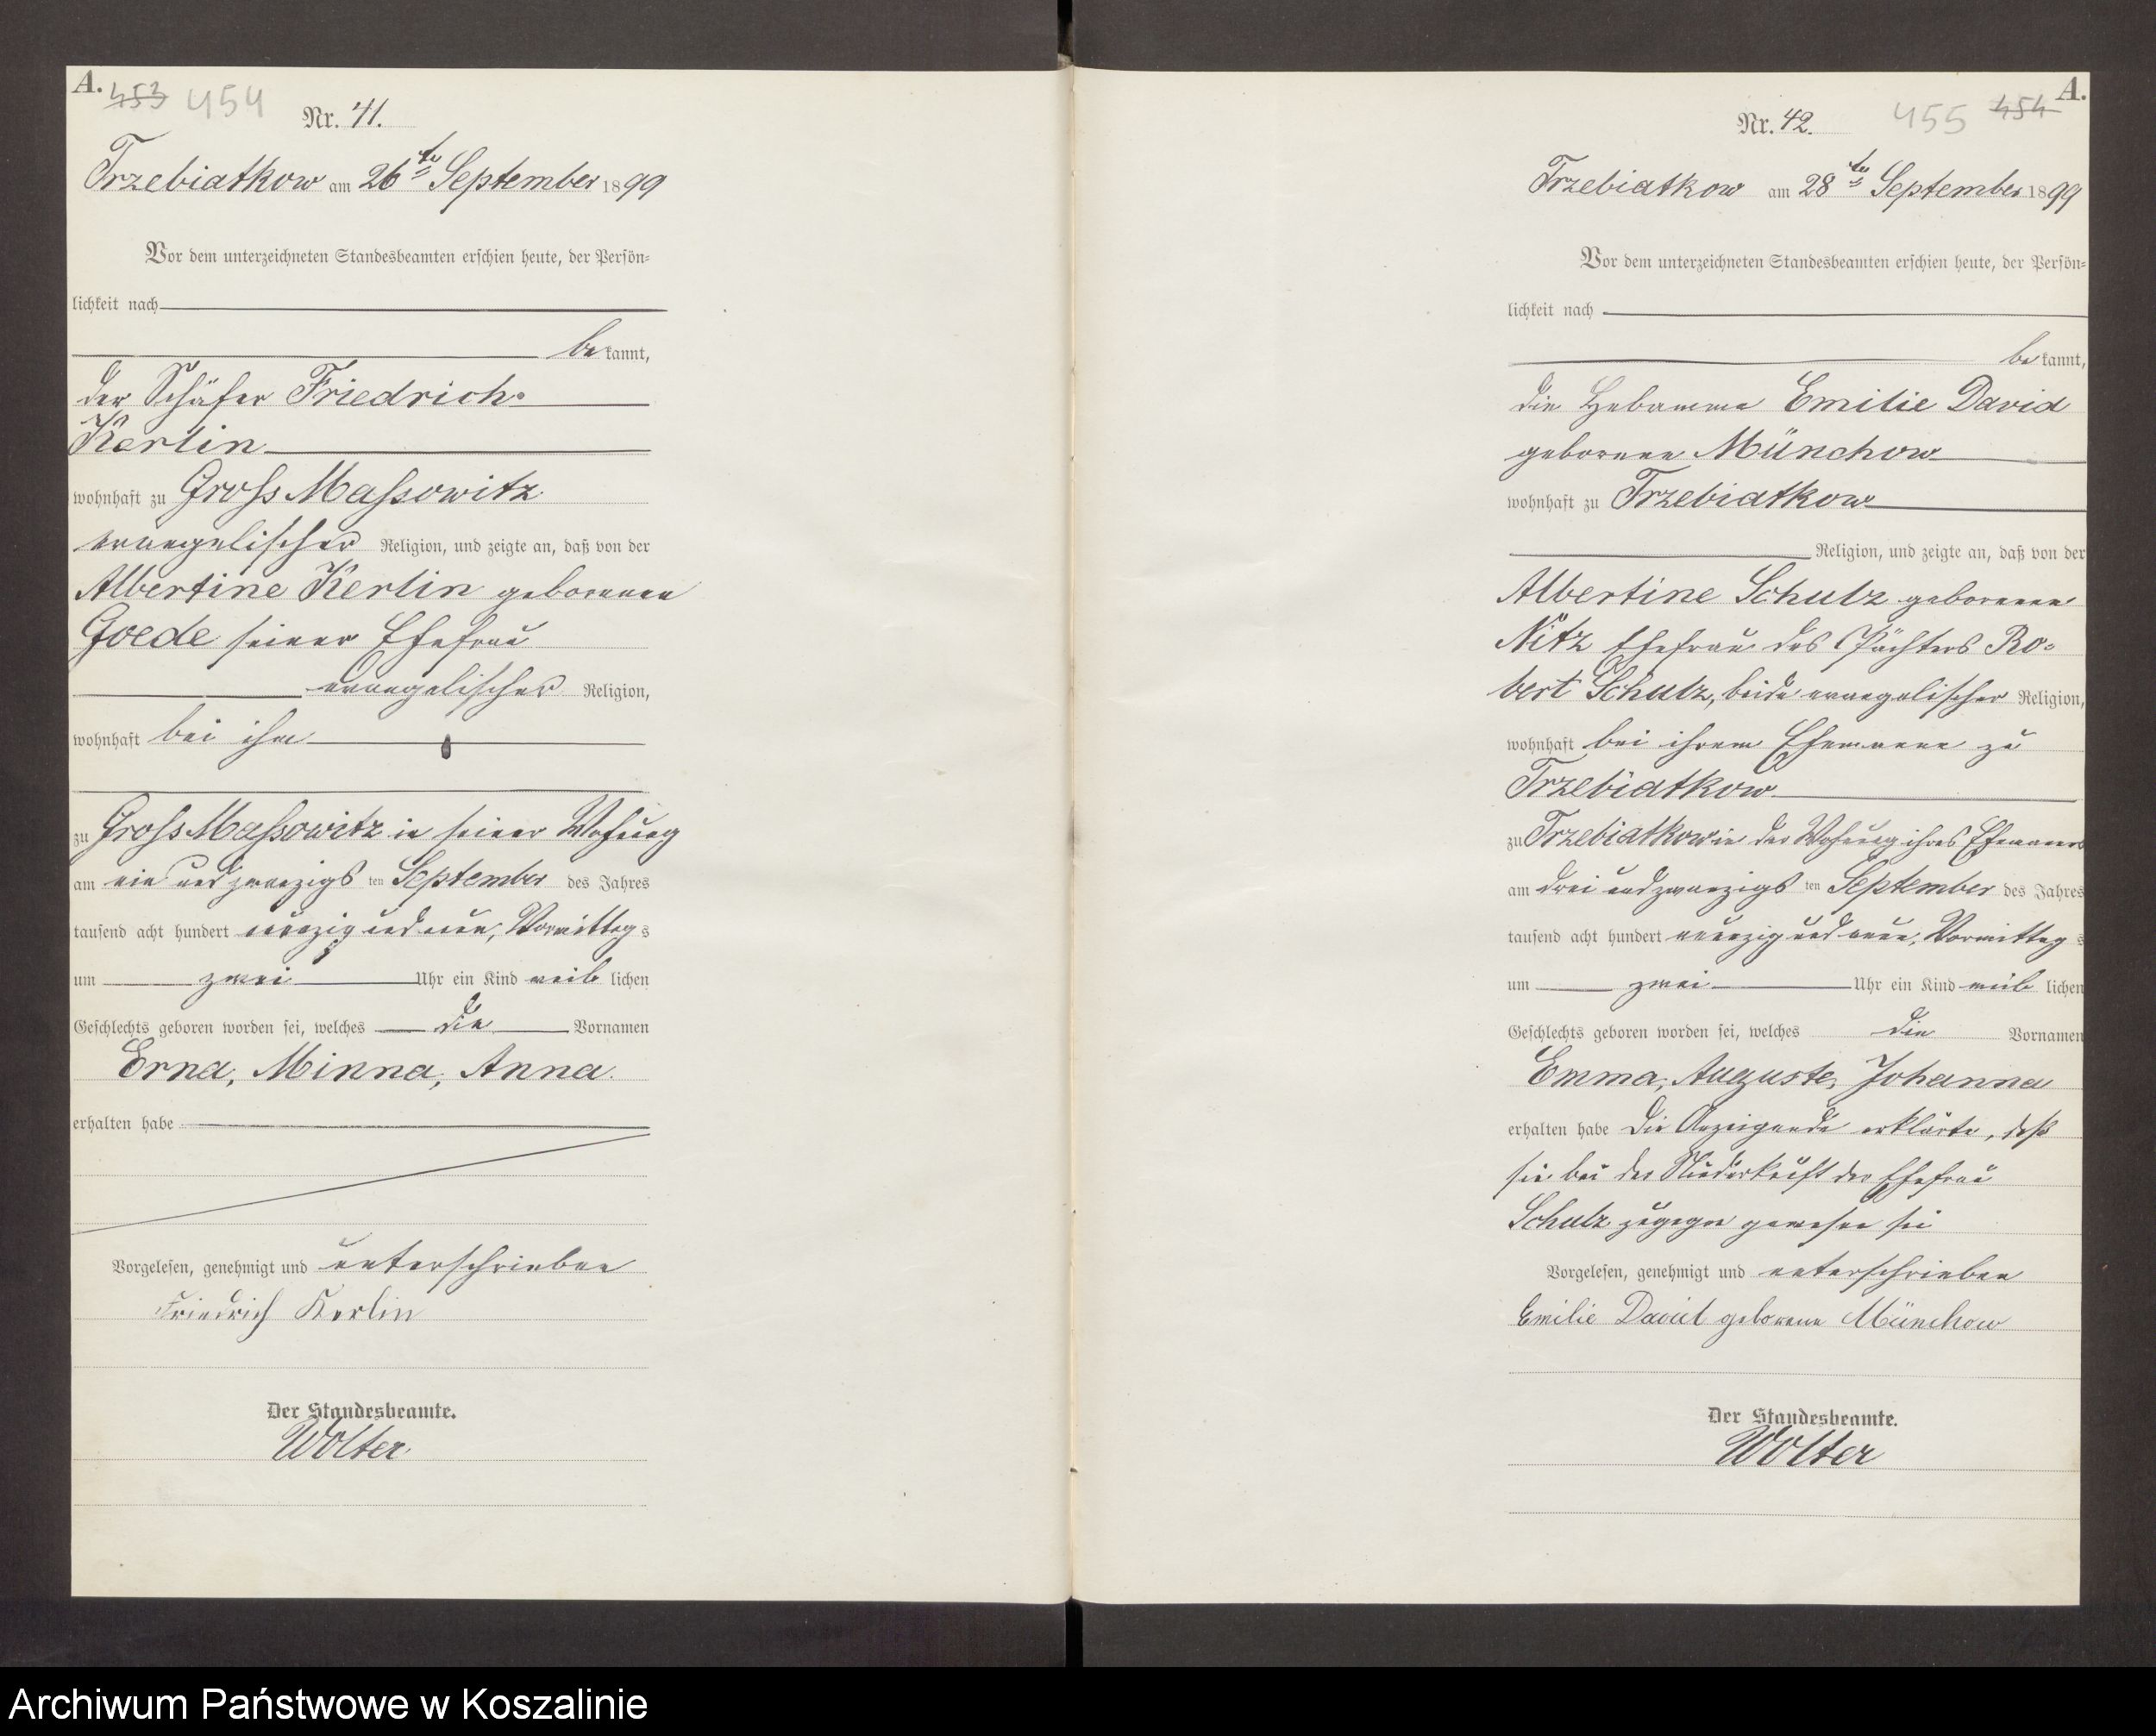 A. 453 454
Nr. 41.
Trzebiatkow am 26ten September 1899
Vor dem unterzeichneten Standesbeamten erschien heute, der Persön-
lichkeit nach
bekannt,
der Schäfer Friedrich
Kerlin
wohnhaft zu Gross Massowitz
evangelischer Religion, und zeigte an, daß von der
Albertine Kerlin geborenen
Goede seiner Ehefrau
evangelischer Religion,
wohnhaft bei ihm
zu Gross Massowitz in seiner Wohnung
am ein und zwanzigsten September des Jahres
tausend acht hundert neunzig und neun, Vormittags
um zwei Uhr ein Kind weiblichen
Geschlechts geboren worden sei, welches die Vornamen
Erna, Minna, Anna.
erhalten habe
Vorgelesen, genehmigt und unterschrieben
Friedrich Kerlin
Der Standesbeamte.
Wolter
A.
Nr. 42. 455 454
Trzebiatkow am 28ten September 1899
Vor dem unterzeichneten Standesbeamten erschien heute, der Persön-
lichkeit nach
bekannt,
die Hebamme Emilie David
geborene Münchow
wohnhaft zu Trzebiatkow
Religion, und zeigte an, daß von der
Albertine Schulz geborenen
Nitz Ehefrau des Pächters Ro-
bert Schulz, beide evangelischer Religion,
wohnhaft bei ihrem Ehemanne zu
Trzebiatkow
zu Trzebiatkow in der Wohnung ihres Ehemannes
am drei und zwanzigsten September des Jahres
tausend acht hundert neunzig und neun, Vormittags
um zwei Uhr ein Kind weiblichen
Geschlechts geboren worden sei, welches die Vornamen
Emma, Auguste, Johanna
erhalten habe Die Anzeigende erklärte, daß
sie bei der Niederkunft der Ehefrau
Schulz zugegen gewesen sei
Vorgelesen, genehmigt und unterschrieben
Emilie David geborene Münchow
Der Standesbeamte.
Wolter
Archiwum Państwowe w Koszalinie